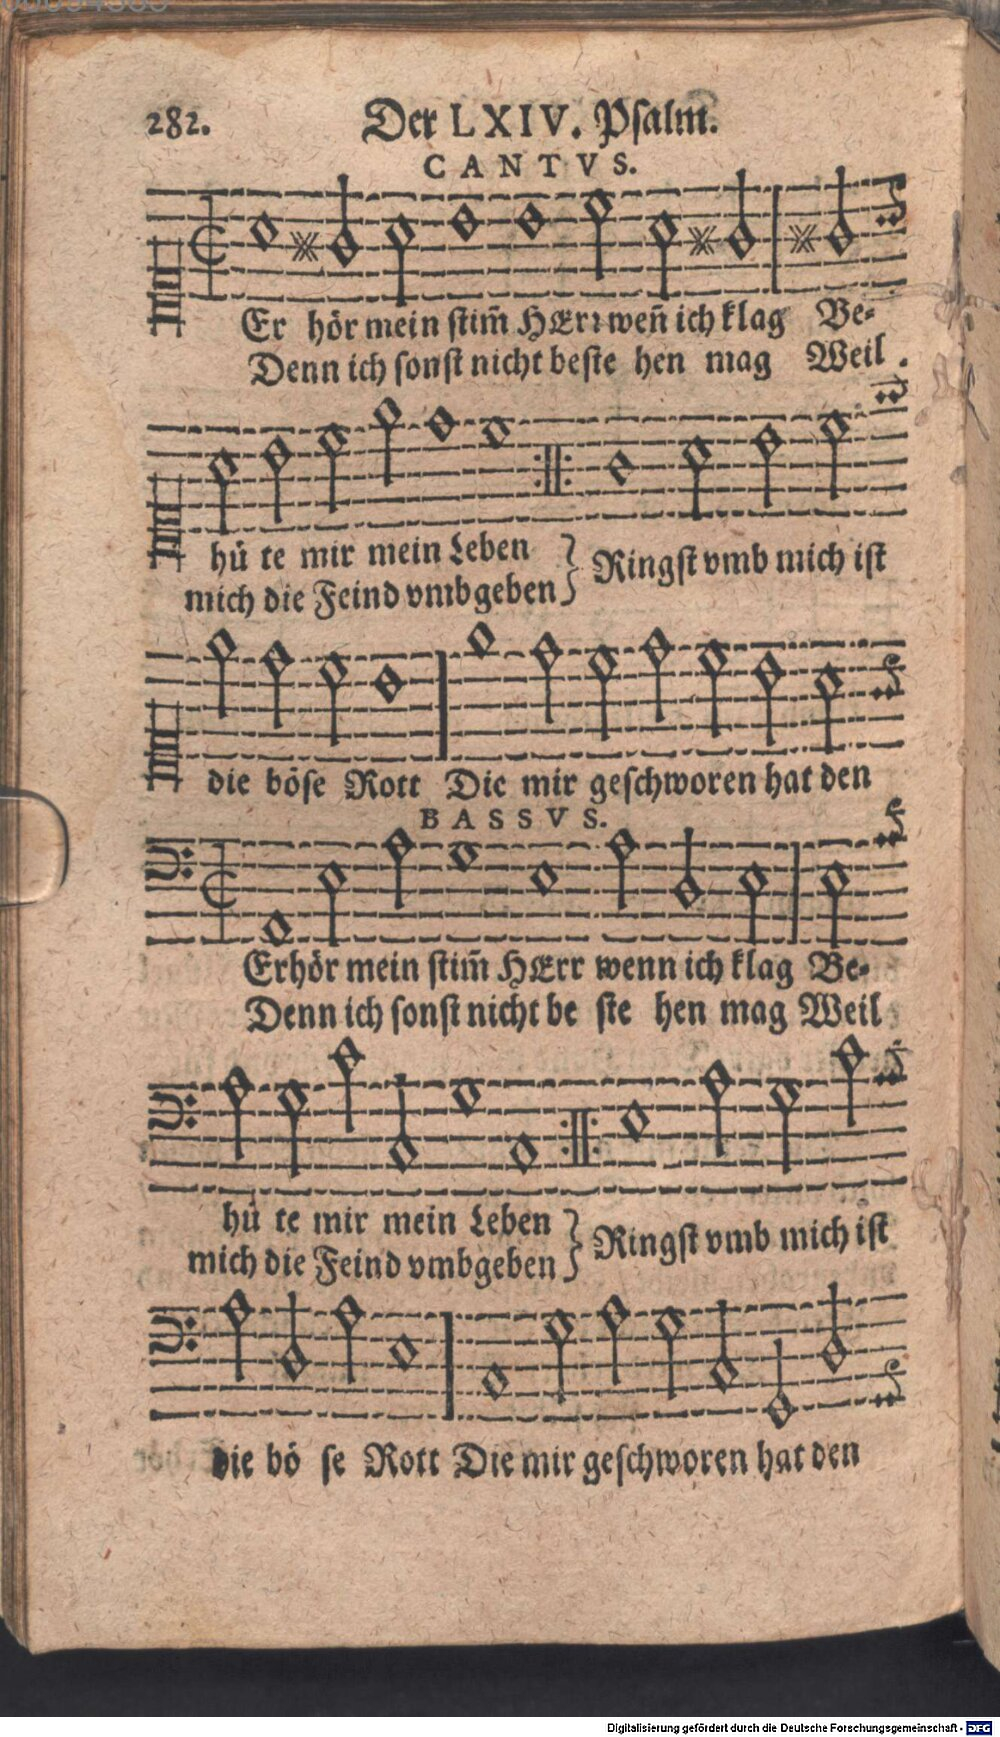 282.
Der LXIV. Psalm.
CANTVS.
Er hör mein stim̃ HErr wen̄ ich klag Be-
Denn ich sonst nicht beste hen mag Weil
hü te mir mein Leben
mich die Feind vmbgeben } Ringst vmb mich ist
die böse Rott Die mir geschworen hat den
BASSVS.
Erhör mein stim̃ HErr wenn ich klag Be-
Denn ich sonst nicht be ste hen mag Weil
hü te mir mein Leben
mich die Feind vmbgeben } Ringst vmb mich ist
die bö se Rott Die mir geschworen hat den
Digitalisierung gefördert durch die Deutsche Forschungsgemeinschaft - DFG